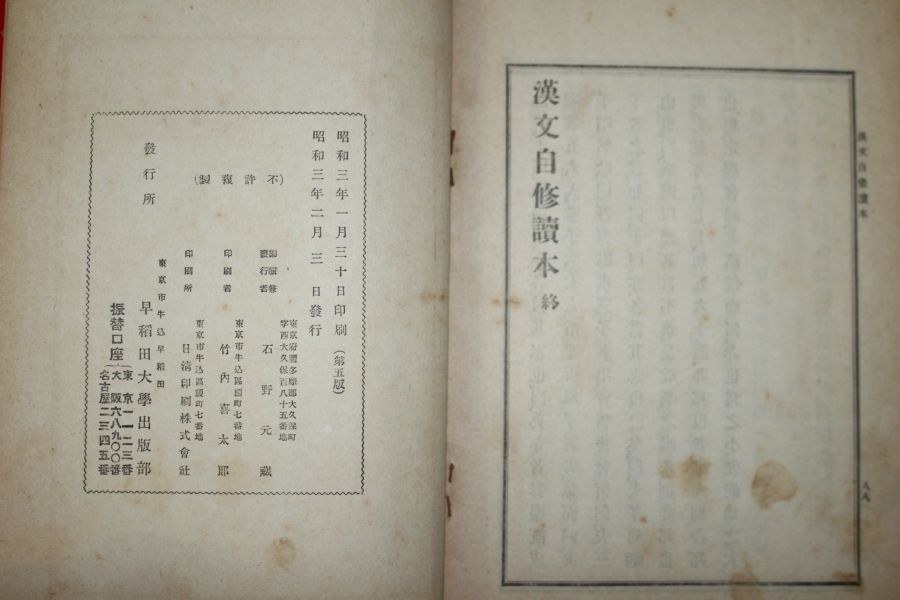 漢文自修讀本
八八
漢文自修讀本終
昭和三年一月三十日印刷(第五版)
昭和三年二月三日發行
(不許複製)
編輯兼發行者
東京府豐多摩郡大久保町
字西大久保百八十五番地
石野元藏
印刷者
東京市牛込區榎町七番地
竹內喜太郎
印刷所
東京市牛込區榎町七番地
日淸印刷株式會社
發行所
東京市牛込早稻田
早稻田大學出版部
振替口座
(東京一一二三番
(大阪六八九〇〇番
名古屋二三四五番